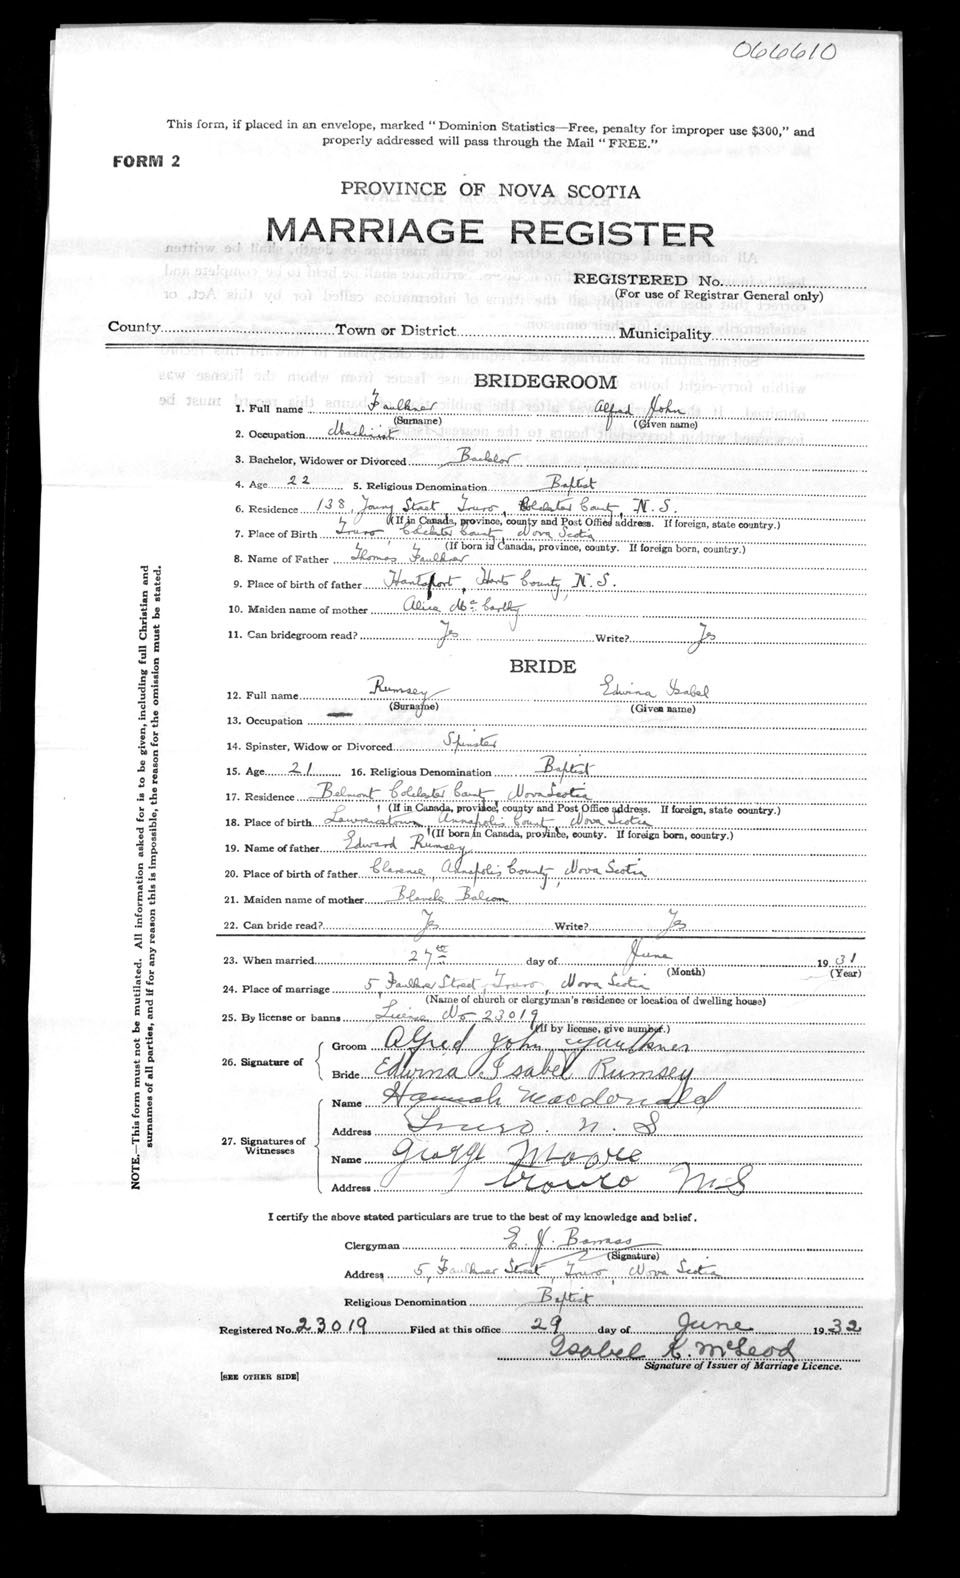 066610
This form, if placed in an envelope, marked "Dominion Statistics—Free, penalty for improper use $300," and
properly addressed will pass through the Mail "FREE."
FORM 2
PROVINCE OF NOVA SCOTIA
MARRIAGE REGISTER
REGISTERED No.
(For use of Registrar General only)
County Town or District Municipality
BRIDEGROOM
1. Full name Faulkner Alfred John
(Surname) (Given name)
2. Occupation Machinist
3. Bachelor, Widower or Divorced Bachelor
4. Age 22 5. Religious Denomination Baptist
6. Residence 138, Young Street Truro, Colchester County, N.S.
(If in Canada, province, county and Post Office address. If foreign, state country.)
7. Place of Birth Truro, Colchester County, Nova Scotia
(If born in Canada, province, county. If foreign born, country.)
8. Name of Father Thomas Faulkner
9. Place of birth of father Hantsport, Hants County, N.S.
10. Maiden name of mother Alice McCarthy
11. Can bridegroom read? Yes Write? Yes
BRIDE
12. Full name Rumsey Edwina Isabel
(Surname) (Given name)
13. Occupation —
14. Spinster, Widow or Divorced Spinster
15. Age 21 16. Religious Denomination Baptist
17. Residence Belmont Colchester County, Nova Scotia
(If in Canada, province, county and Post Office address. If foreign, state country.)
18. Place of birth Lawrencetown, Annapolis County, Nova Scotia
(If born in Canada, province, county. If foreign born, country.)
19. Name of father Edward Rumsey
20. Place of birth of father Clarence, Annapolis County, Nova Scotia
21. Maiden name of mother Blanche Balcom
22. Can bride read? Yes Write? Yes
23. When married 27th day of June 1931
(Month) (Year)
24. Place of marriage 5, Faulkner Street, Truro, Nova Scotia
(Name of church or clergyman's residence or location of dwelling house)
25. By license or banns License No 23019
(If by license, give number.)
26. Signature of Groom Alfred John Faulkner
Bride Edwina Isabel Rumsey
27. Signatures of Witnesses Name Hannah Macdonald
Address Truro. N. S
Name George Moore
Address Truro N S
NOTE.—This form must not be mutilated. All information asked for is to be given, including full Christian and
surnames of all parties, and if for any reason this is impossible, the reason for the omission must be stated.
I certify the above stated particulars are true to the best of my knowledge and belief.
Clergyman E. J. Barrass
(Signature)
Address 5, Faulkner Street, Truro, Nova Scotia
Religious Denomination Baptist
Registered No. 23019 Filed at this office 29 day of June 1932
Isabel K. McLeod
Signature of Issuer of Marriage Licence.
[SEE OTHER SIDE]